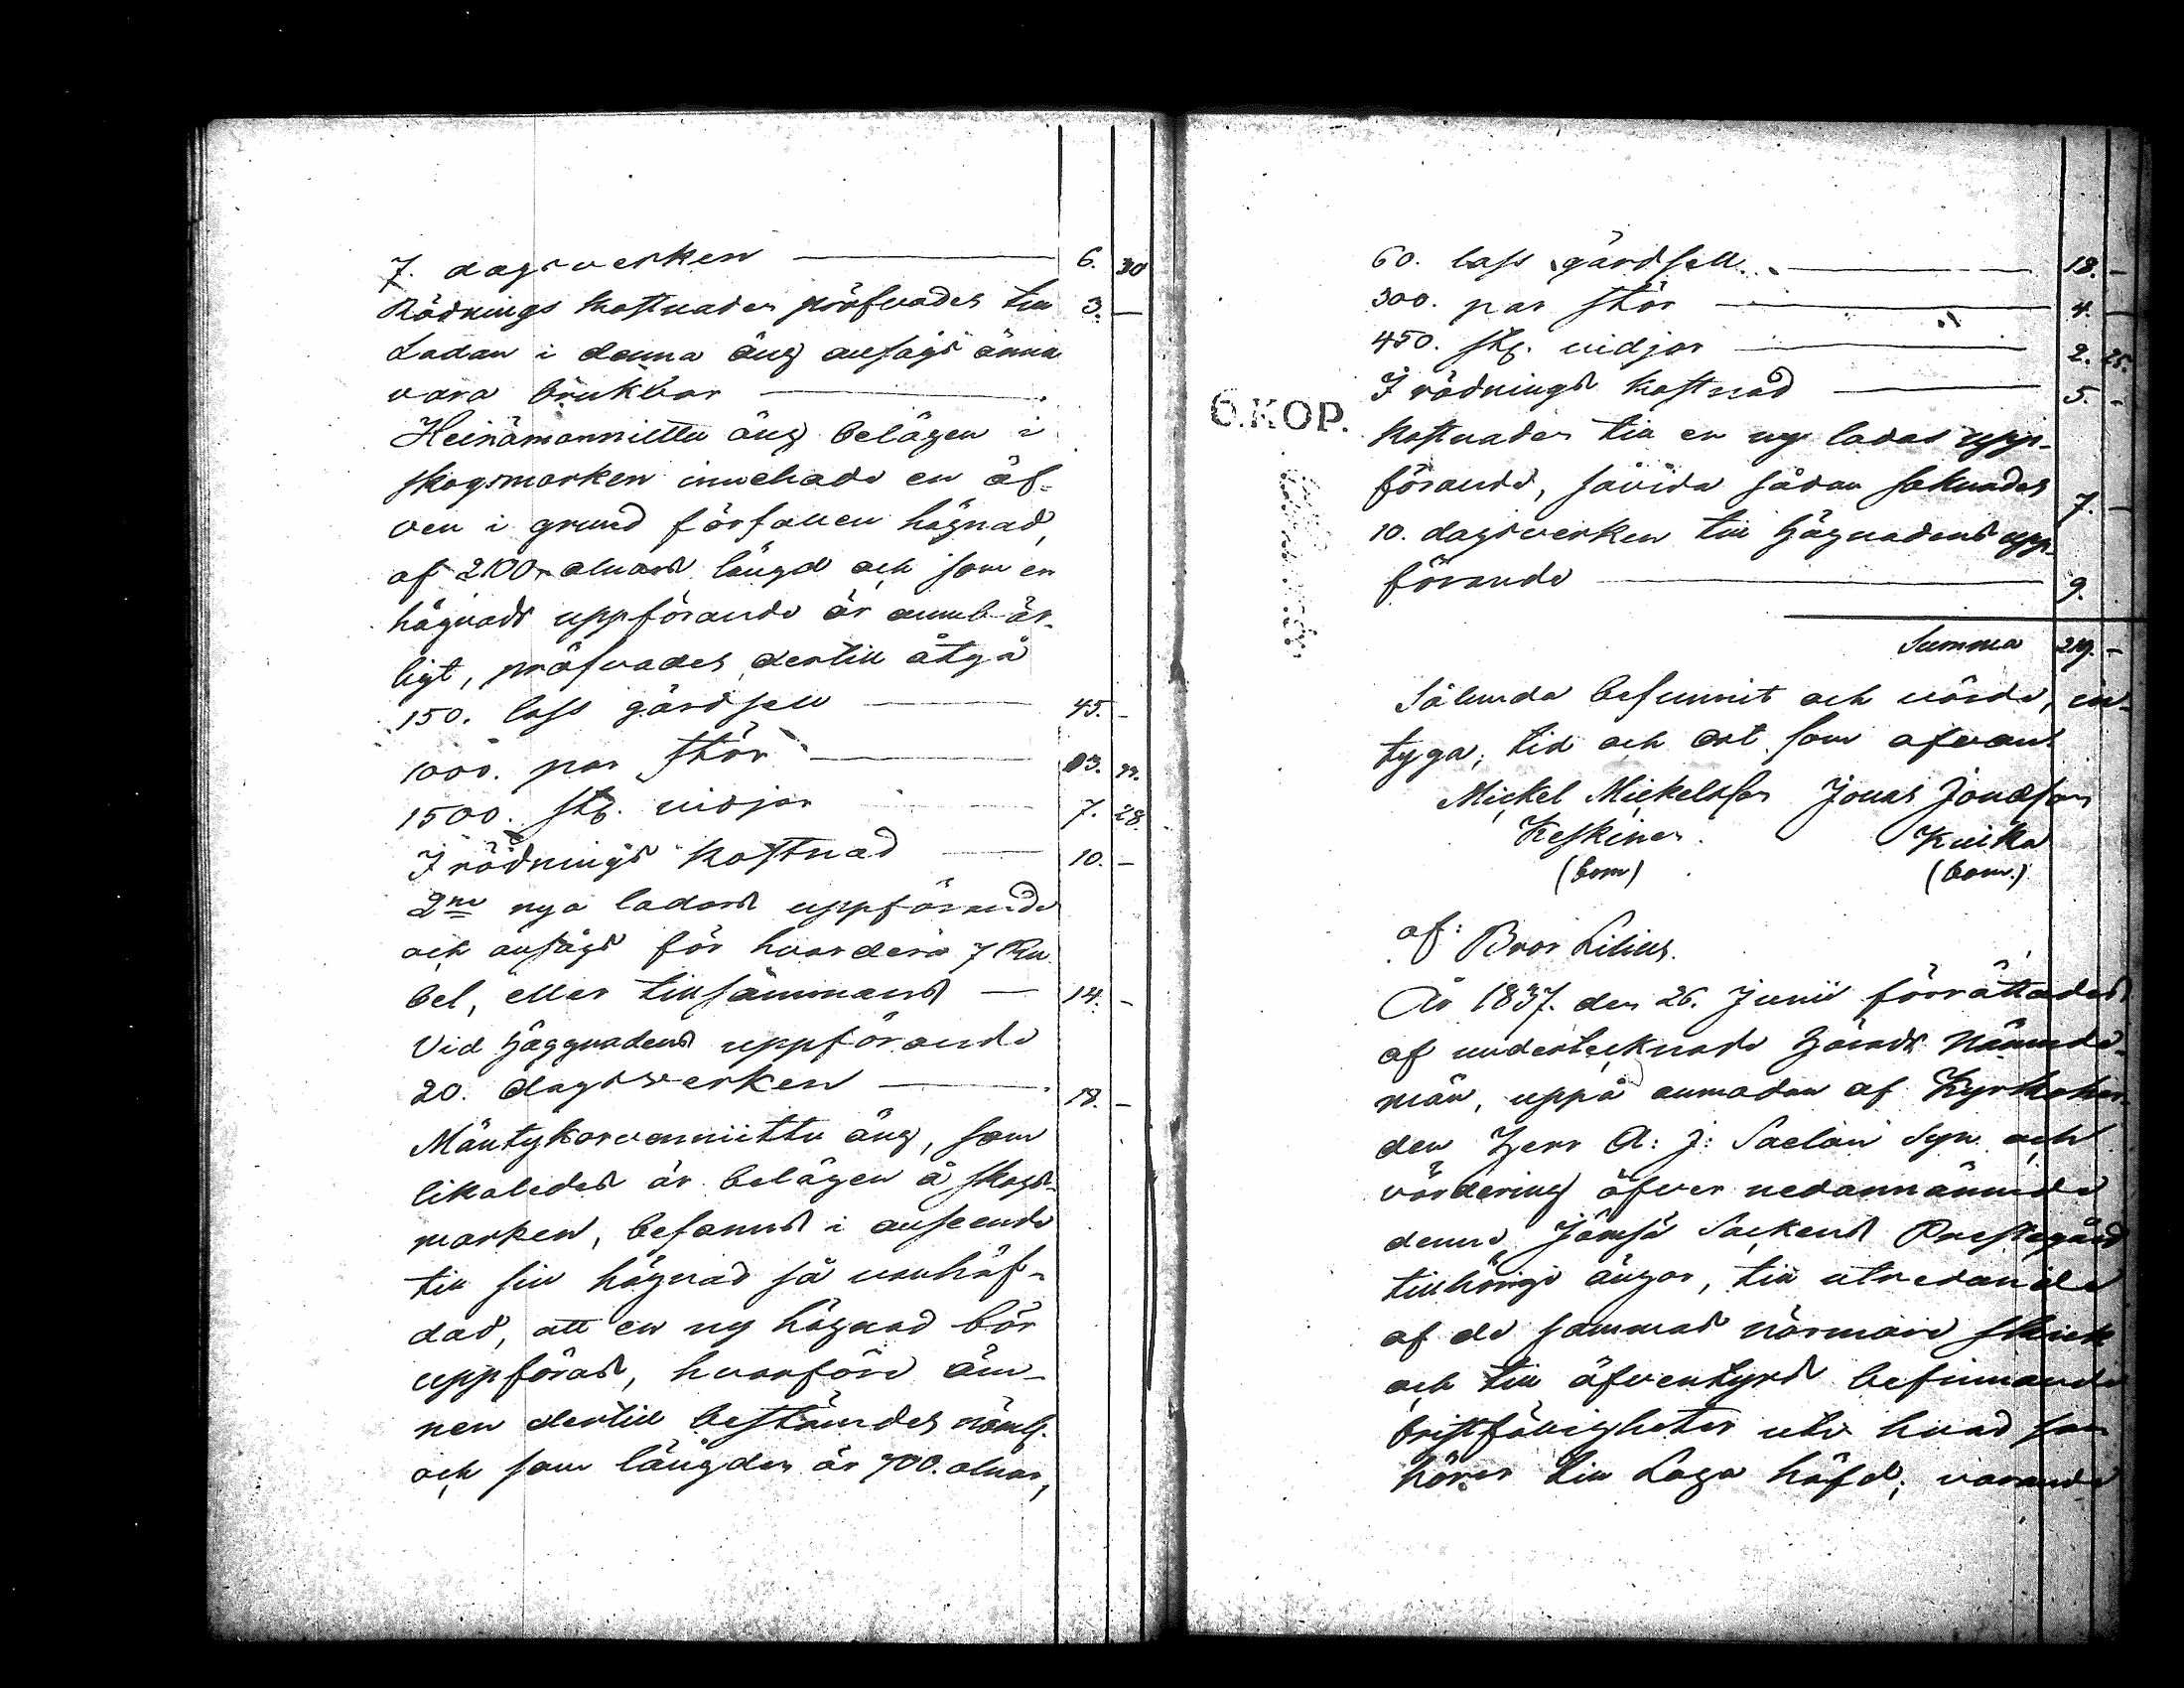 7. dagsverken 6. 30
Rödnings kostnaden pröfvades till 3. –
Ladan i denna äng ansågs ännu
vara brukbar
Heinämanniittu äng belägen i
skogsmarken innehade en äf-
ven i grund förfallen hägnad,
af 2100 alnars längd och som en
hägnads uppförande är oumbär-
ligt, pröfvades dertill åtgå
150. lass gärdsell 45. –
1000. par stör 13. 33.
1500. stg. vidjor 7. 28.
I rödnings kostnad 10. –
2ne nya ladors uppförande
och ansågs för hvardera 7 Ru-
bel, eller tillsammans 14. –
Vid Häggnadens uppförande
20. dagsverken 18. –
Mäntykorvenniittu äng, som
likaledes är belägen å skogs-
marken, befanns i anseende
till sin hägnad så vanhäf-
dad, att en ny hägnad bör
uppföras, hvarföre äm-
nen dertill bestämdes näml.
och som längden är 700. alnar,
60. lass gärdsell 18. –
300. par stör 4. –
450. stg. vidjor 2. 25.
I rödnings kostnad 5. –
6.KOP.
Kostnaden till en ny ladas upp-
förande, såvida sådan saknades 7. –
10. dagsverken till Hägnadens upp-
förande 9.
Summa 219. –
Sålunda befunnit och värde, in-
tyga; tid och ort som ofvan:
Mickel Mickelsson Jonas Jonasson
Keskinen Kuikka
(bom) (bom.)
af: Bror Lilius.
År 1837. den 26. Junii förrättades
af undertecknade Härads Nämnde-
män, uppå anmodan af Kyrkoher-
den Herr A: J: Saelan Syn och
värdering öfver nedannämnde
denne Jämsä Sockens Prestegård
tillhörige ängar, till utredande
af de sammas närmare skick
och till äfventyrs befinnande
bristfälligheter uti hvad som
hörer till Laga häfd; varande